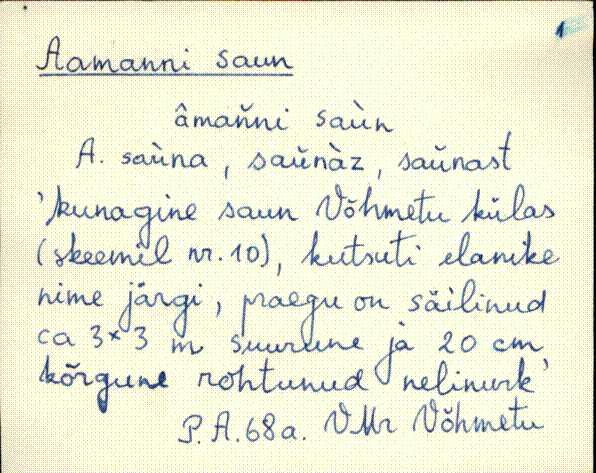 1
Aamanni saun
âmaňni saùn
A. saùna, saŭnàz, saŭnast
'kunagine saun Võhmetu külas
(skeemil nr. 10), kutsuti elanike
nime järgi, praegu on säilinud
ca 3x3 m suurune ja 20 cm
kõrgune rohtunud nelinurk'
P.A. 68a. VMr Võhmetu